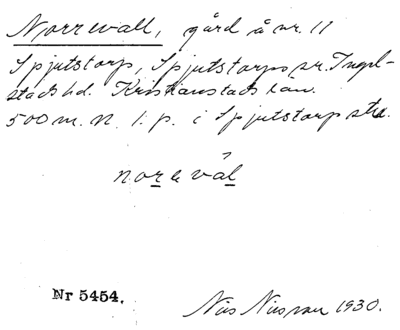 Norrevall, gård å nr. 11
Spjutstorp, Spjutstorps sn. Ingel-
stads hd. Kristianstads län.
500 m. N. l. p. i Spjutstorp
norevål
Nr 5454.
Nils Nilsson 1930.